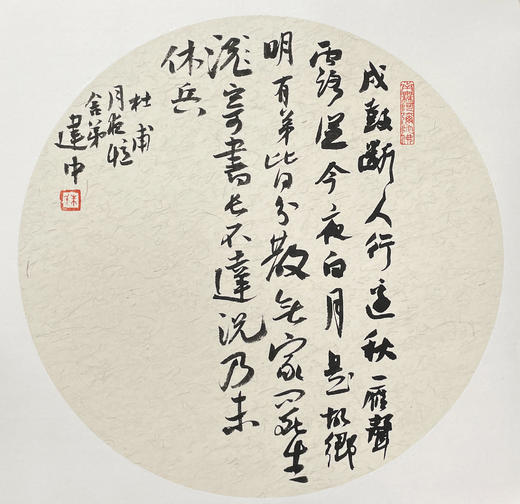 戍鼓斷人行邊秋一雁聲
露從今夜白月是故鄉
明有弟皆分散無家問死生
寄書長不達況乃未
休兵
杜甫
月夜憶
舍弟
建中